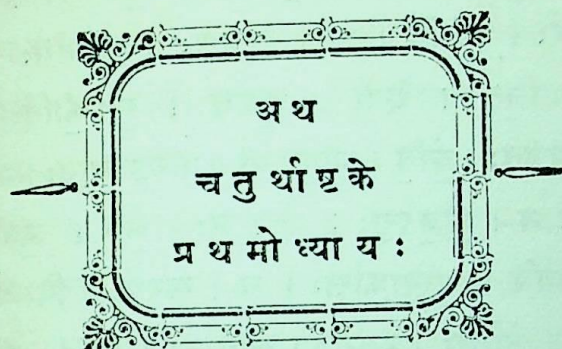 अथ
चतुर्थाष्टके
प्रथमोध्यायः